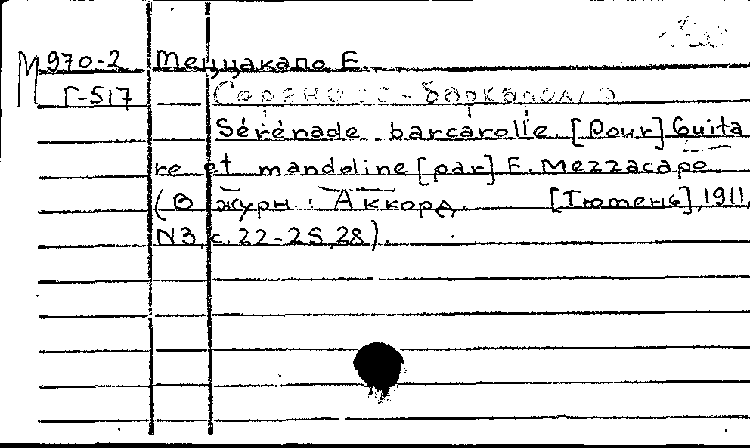 М 970-2 Меццакапо Е.
Г-517 Серенада-баркаролла
Sérénade barcarolle. [Pour] Guita
re et mandoline [par] E. Mezzacapo.
(В журн.: Аккорд. [Тюмень], 1911,
N3, с. 22-25, 28).